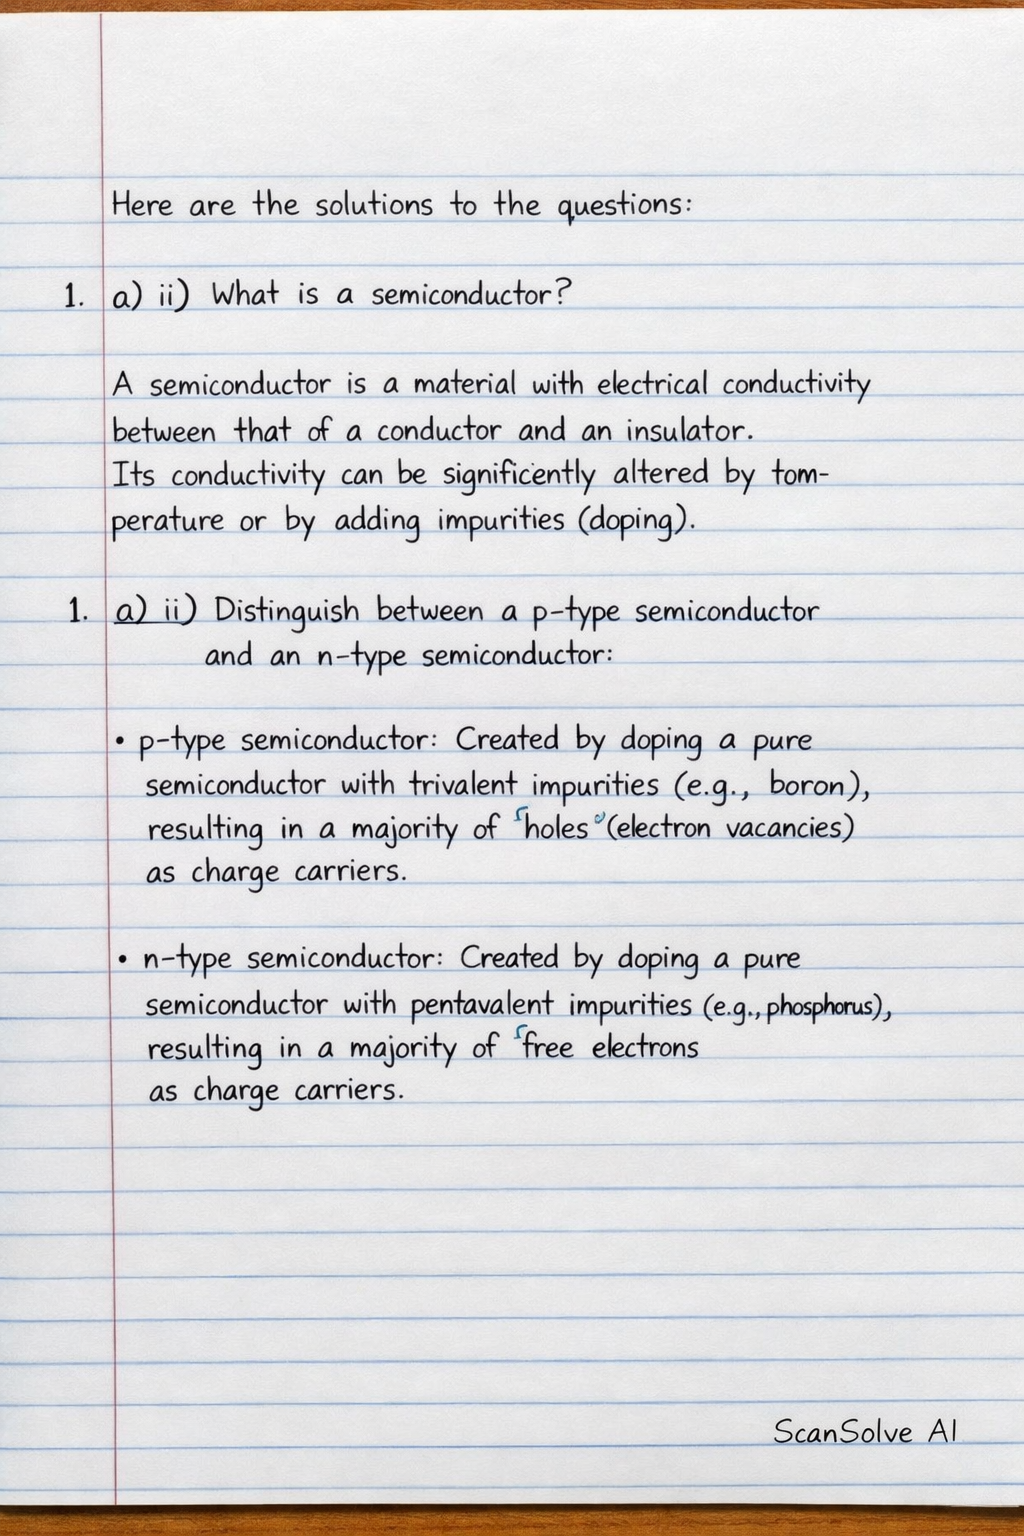 Here are the solutions to the questions:
1. a) ii) What is a semiconductor?
A semiconductor is a material with electrical conductivity
between that of a conductor and an insulator.
Its conductivity can be significently altered by tom-
perature or by adding impurities (doping).
1. a) ii) Distinguish between a p-type semiconductor
and an n-type semiconductor:
• p-type semiconductor: Created by doping a pure
semiconductor with trivalent impurities (e.g., boron),
resulting in a majority of "holes" (electron vacancies)
as charge carriers.
• n-type semiconductor: Created by doping a pure
semiconductor with pentavalent impurities (e.g., phosphorus),
resulting in a majority of "free electrons
as charge carriers.
ScanSolve AI